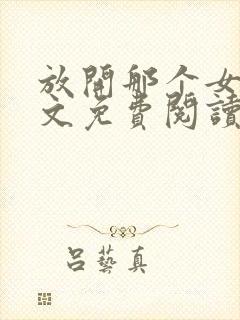 放開那个女
文免費閱讀
呂藝真